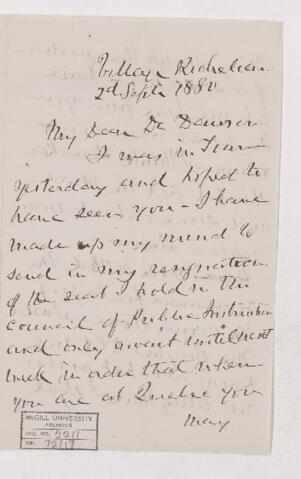 Village Richelieu
2d Septr 1880
My Dear Dr Dawson
I was in Town
yesterday and hoped to
have seen you - I have
made up my mind to
send in my resignation
of the seat I hold in the
Council of Public Instruction
and only await until next
week in order that when
you are at Quebec you
may
McGILL UNIVERSITY
ARCHIVES
ACC. NO. 2211
REF.